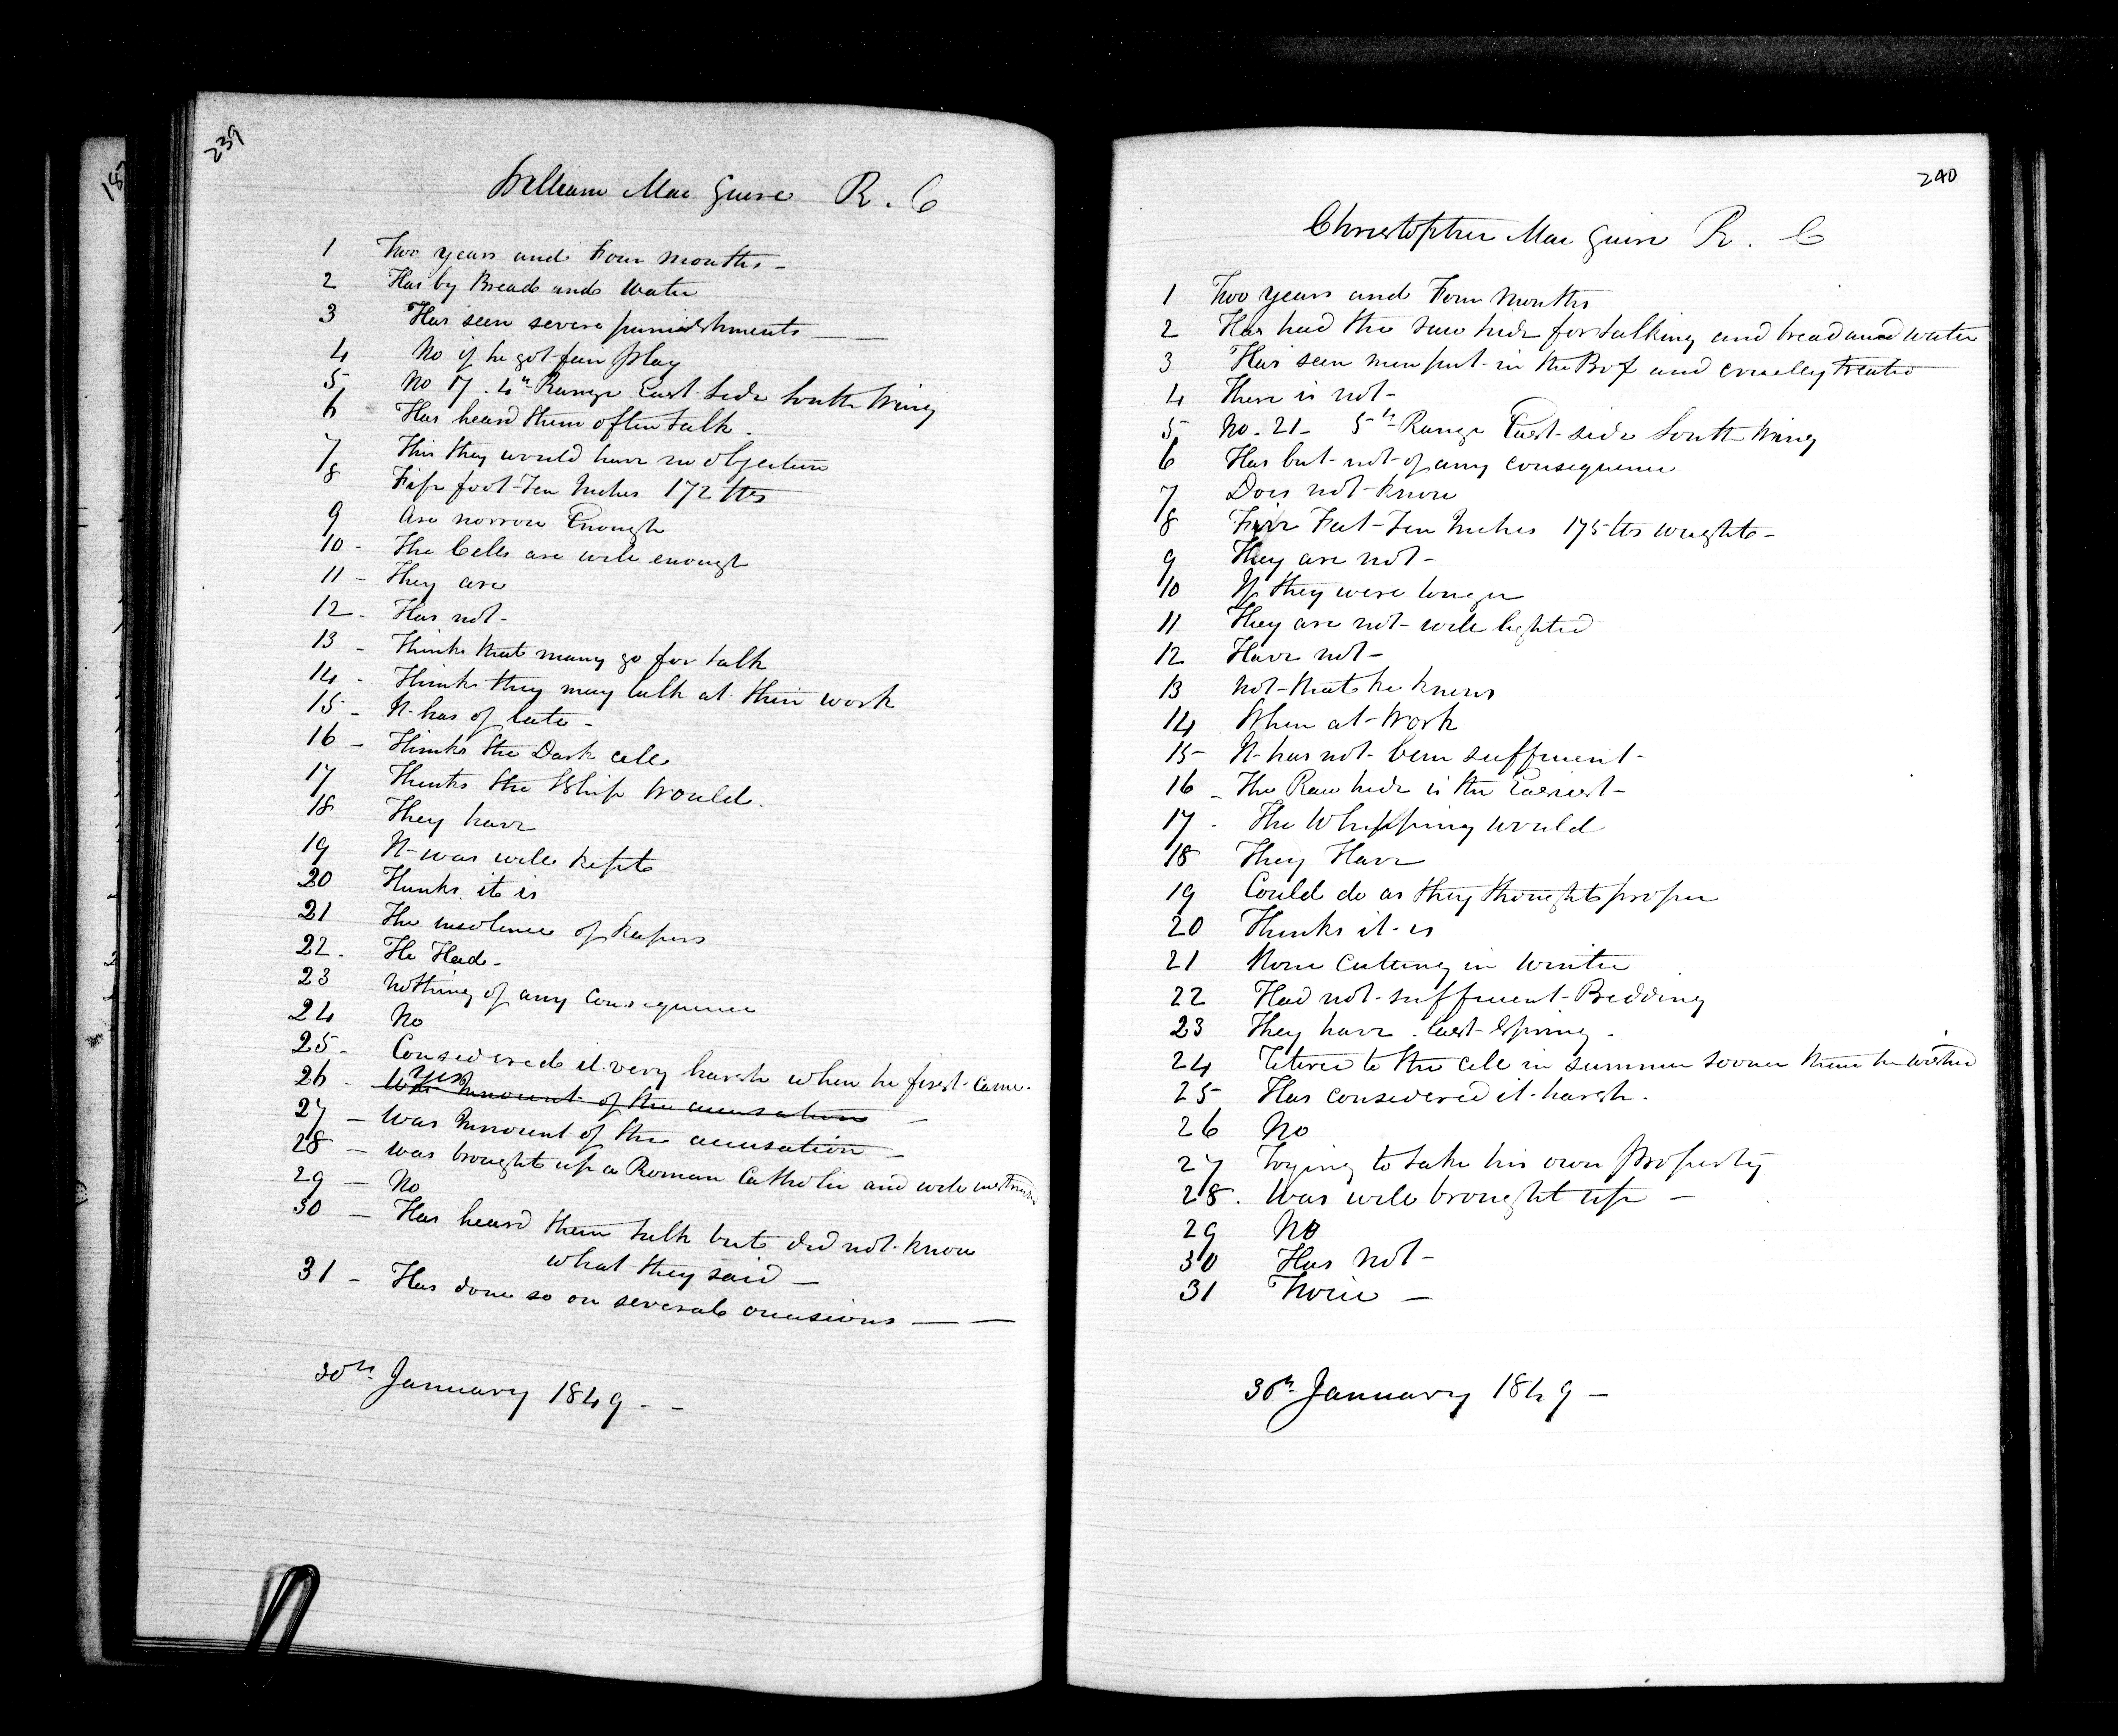 239
William Mac Guire R. C
1 Two years and Four months -
2 Has by Bread and Water
3 Has seen severe punishments
4 No if he got fair play
5 No 17. 4th Range East Side South Wing
6 Has heard them often talk.
7 This they would have no objection
8 Five foot Ten Inches 172 lbs
9 Are norrow Enough
10 - The Cells are well enough
11 - They are
12 - Has not -
13 - Thinks that many go for talk
14 - Thinks they may talk at their work
15 - It has of late -
16 - Thinks the Dark cell
17 Thinks the Whip Would.
18 They have
19 It was well kept
20 Thinks it is
21 The insolence of keepers
22. He Had -
23 Nothing of any Consequence
24 No
25 - Considered it very harsh when he first came -
26 - Yes
Was Innocent of the accusation -
27 - Was Innocent of the accusation -
28 - was brought up a Roman Catholic and well
29 - No
30 - Has heard them talk but did not know
what they said -
31 - Has done so on several occasions
30th January 1849 - -
187
240
Christopher Mac Guire R. C
1 Two years and Four Months
2 Has had the raw hide for talking and bread and water
3 Has seen men put in the Box and cruelly treated
4 There is not -
5 No. 21 - 5th Range East side South Wing
6 Has but not of any consequence
7 Does not know
8 Five Feet Ten Inches 175 lbs weight -
9 They are not -
10 If they were longer
11 They are not well lighted
12 Have not -
13 Not that he knows
14 When at Work
15 It has not been sufficient -
16 - The Raw hide is the Easiest -
17 - The Whipping would
18 They Have
19 Could do as they thought proper
20 Thinks it is
21 in Winter
22 Had not sufficient Bedding
23 They have last Spring -
24 to the cell in summer sooner than he wished
25 Has considered it harsh.
26 No
27 Trying to take his own Property
28. Was well brought up -
29 No
30 Has Not -
31 Twice -
30th January 1849 -